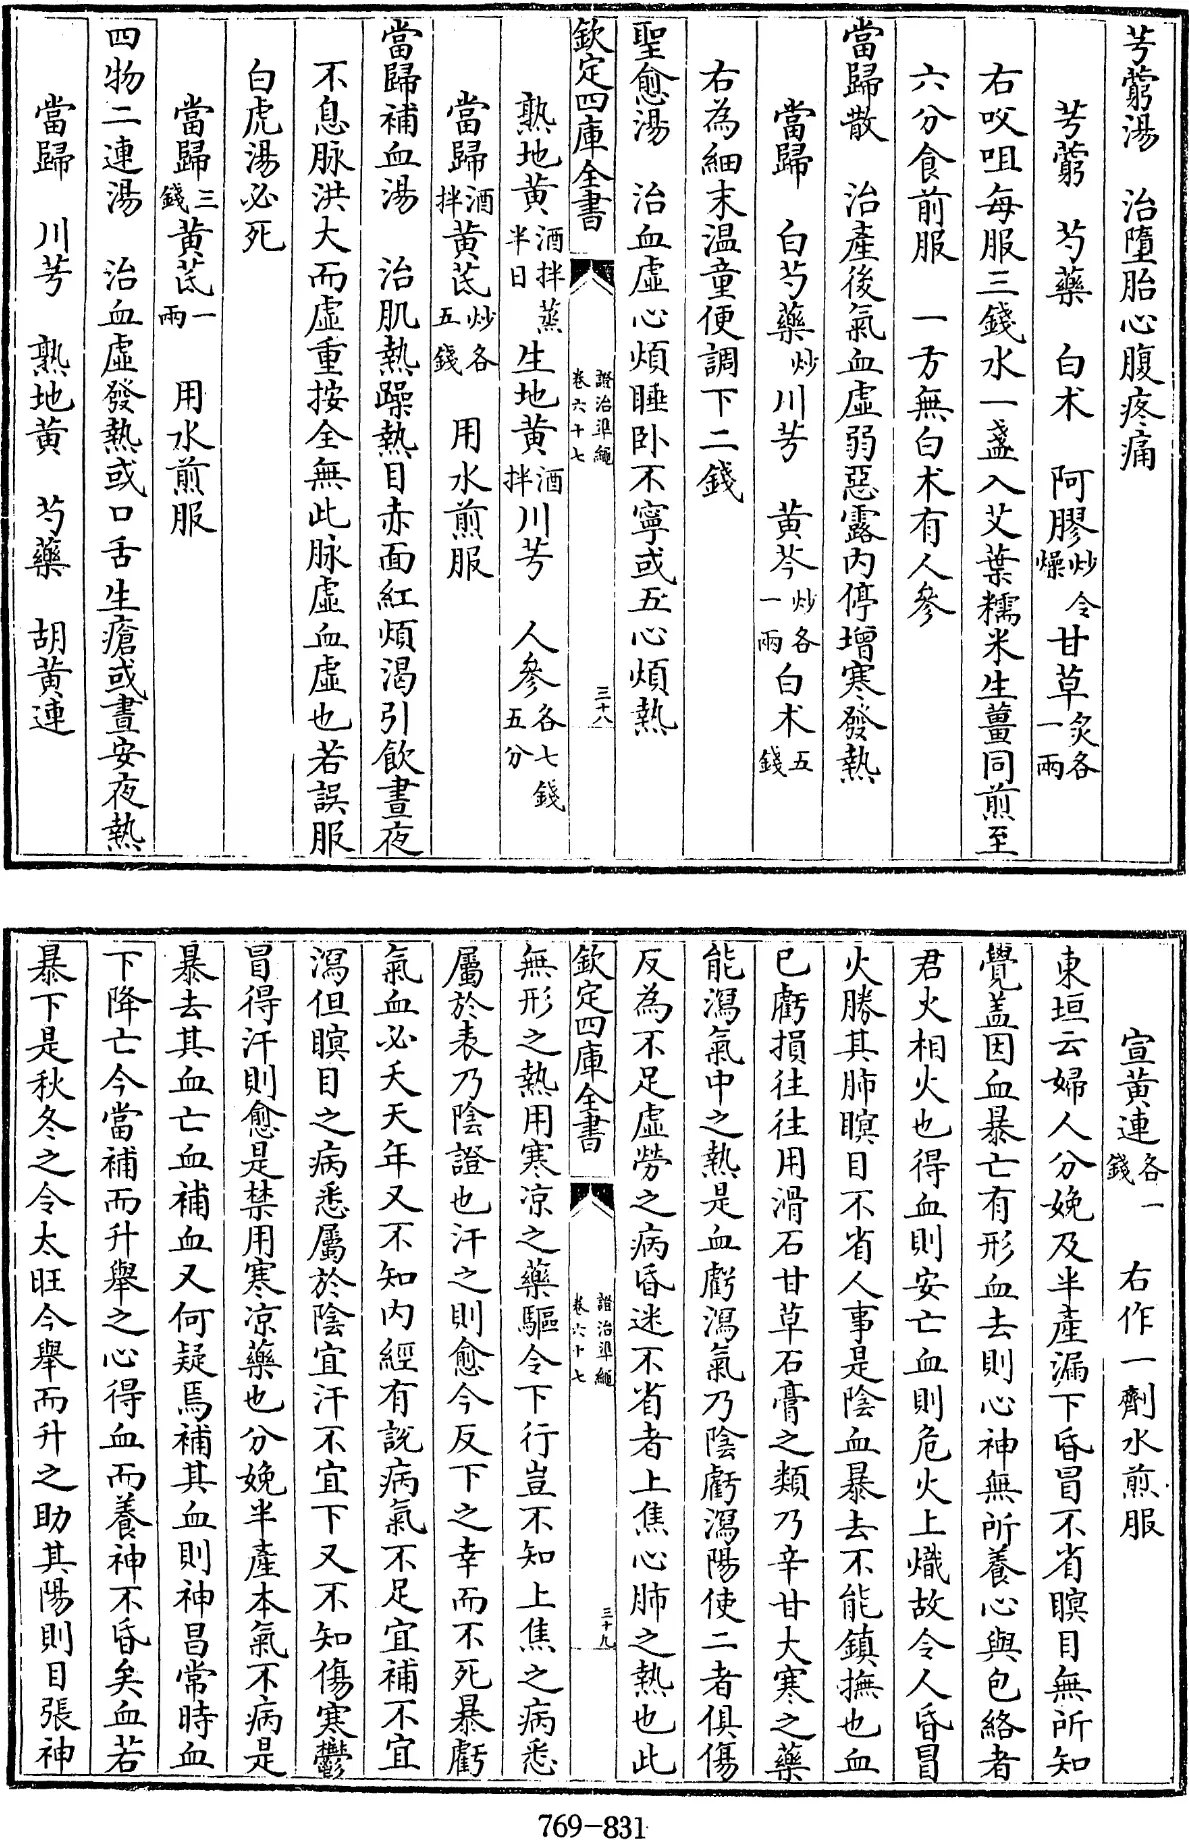 芎藭湯　治墮胎心腹疼痛
芎藭　芍藥　白术　阿膠炒令燥甘草炙各一兩
右㕮咀每服三錢水一盞入艾葉糯米生薑同煎至
六分食前服　一方無白术有人參
當歸散　治產後氣血虛弱惡露內停增寒發熱
當歸　白芍藥炒川芎　黄芩炒各一兩白术五錢
右為細末温童便調下二錢
聖愈湯　治血虛心煩睡卧不寧或五心煩熱
欽定四庫全書　證治準繩卷六十七　三十八
熟地黄酒拌蒸半日生地黄酒拌川芎　人參各七錢五分
當歸酒拌黄茋炒各五錢　用水煎服
當歸補血湯　治肌熱躁熱目赤面紅煩渴引飲晝夜
不息脉洪大而虛重按全無此脉虛血虛也若誤服
白虎湯必死
當歸三錢黄茋一兩　用水煎服
四物二連湯　治血虛發熱或口舌生瘡或晝安夜熱
當歸　川芎　熟地黄　芍藥　胡黄連
宣黄連各一錢　右作一劑水煎服
東垣云婦人分娩及半產漏下昏冒不省瞑目無所知
覺盖因血暴亡有形血去則心神無所養心與包絡者
君火相火也得血則安亡血則危火上熾故令人昏冒
火勝其肺瞑目不省人事是陰血暴去不能鎮撫也血
已虧損往往用滑石甘草石膏之類乃辛甘大寒之藥
能瀉氣中之熱是血虧瀉氣乃陰虧瀉陽使二者俱傷
反為不足虛勞之病昏迷不省者上焦心肺之熱也此
欽定四庫全書　證治準繩卷六十七　三十九
無形之熱用寒凉之藥驅令下行豈不知上焦之病悉
屬於表乃陰證也汗之則愈今反下之幸而不死暴虧
氣血必夭天年又不知内經有說病氣不足宜補不宜
瀉但瞑目之病悉屬於陰宜汗不宜下又不知傷寒鬱
冒得汗則愈是禁用寒凉藥也分娩半產本氣不病是
暴去其血亡血補血又何疑焉補其血則神昌常時血
下降亡今當補而升舉之心得血而養神不昏矣血若
暴下是秋冬之令太旺今舉而升之助其陽則目張神
769-831